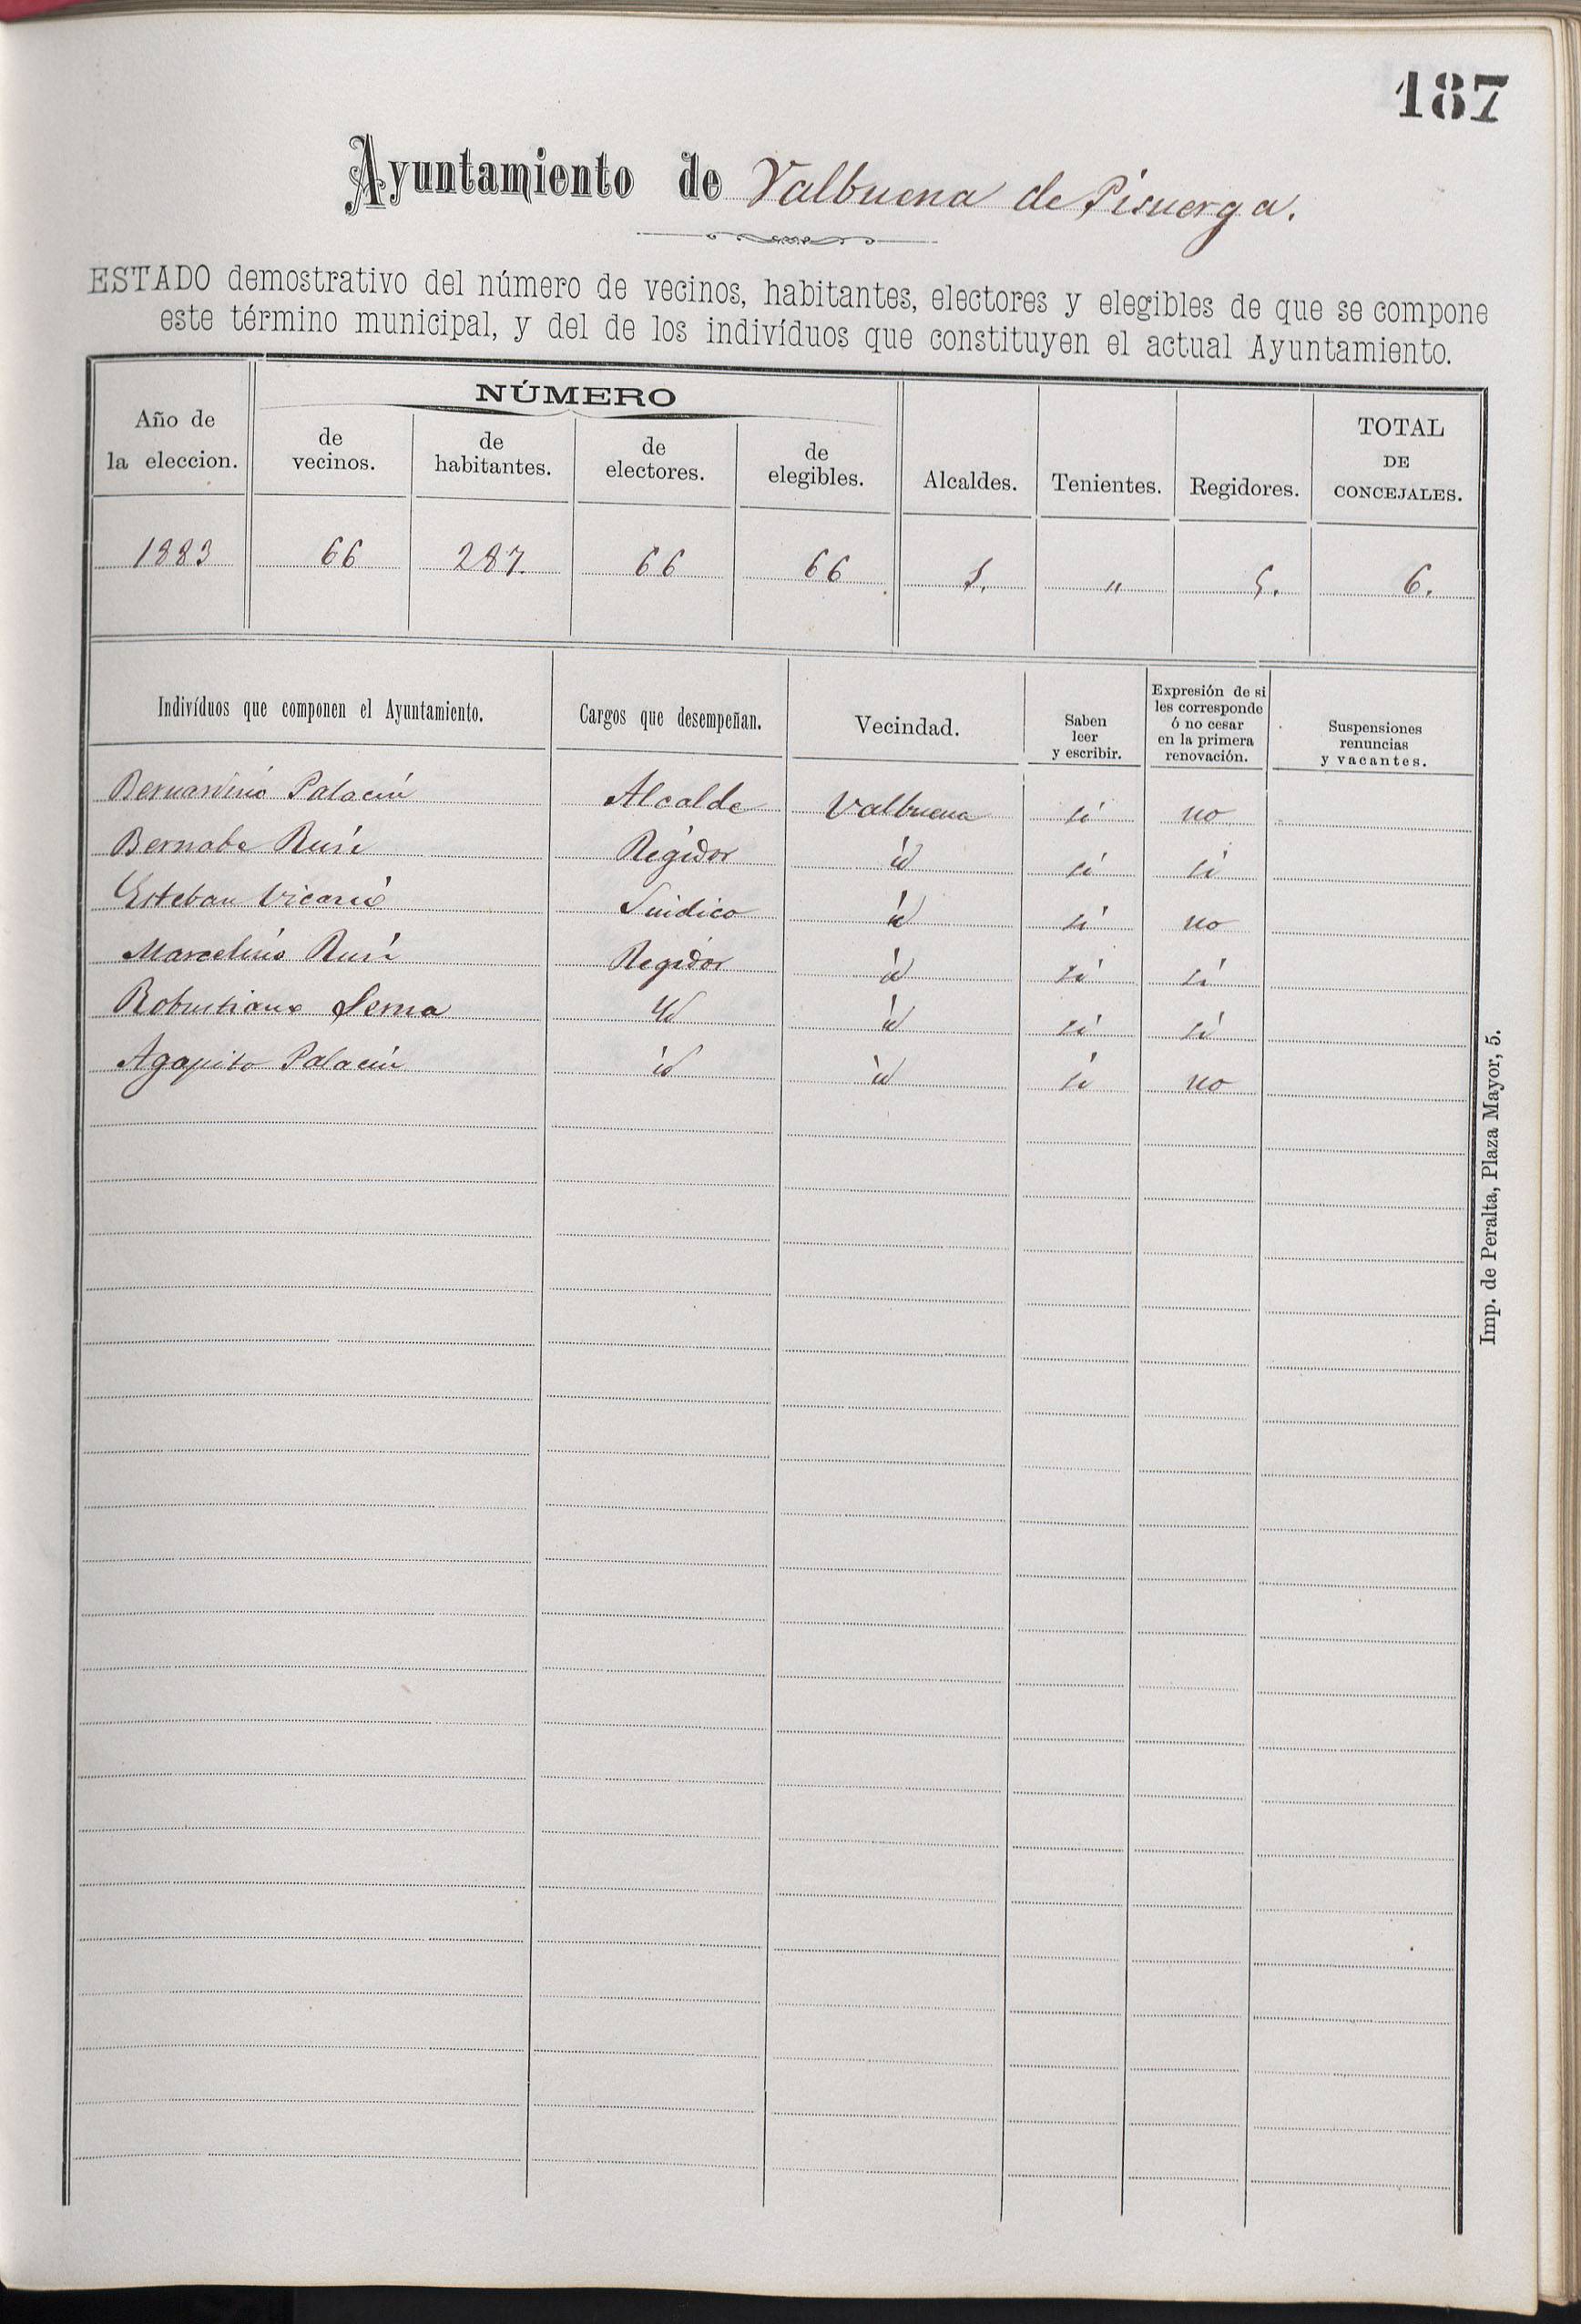 187
Ayuntamiento de Valbuena de Pisuerga.
ESTADO demostrativo del número de vecinos, habitantes, electores y elegibles de que se compone
este término municipal, y del de los indivíduos que constituyen el actual Ayuntamiento.
Año de la eleccion. NÚMERO de vecinos. de habitantes. de electores. de elegibles. Alcaldes. Tenientes. Regidores. TOTAL DE CONCEJALES.
1883 66 287. 66 66 1. " 5. 6.
Indivíduos que componen el Ayuntamiento. Cargos que desempeñan. Vecindad. Saben leer y escribir. Expresión de si les corresponde ó no cesar en la primera renovación. Suspensiones renuncias y vacantes.
Bernardino Palacín Alcalde Valbuena si no
Bernabe Ruíz Regidor id si si
Esteban Vicario Sindico id si no
Marcelino Ruíz Regidor id si si
Robustiano Serna Id id si si
Agapito Palacín id id si no
Imp. de Peralta, Plaza Mayor, 5.